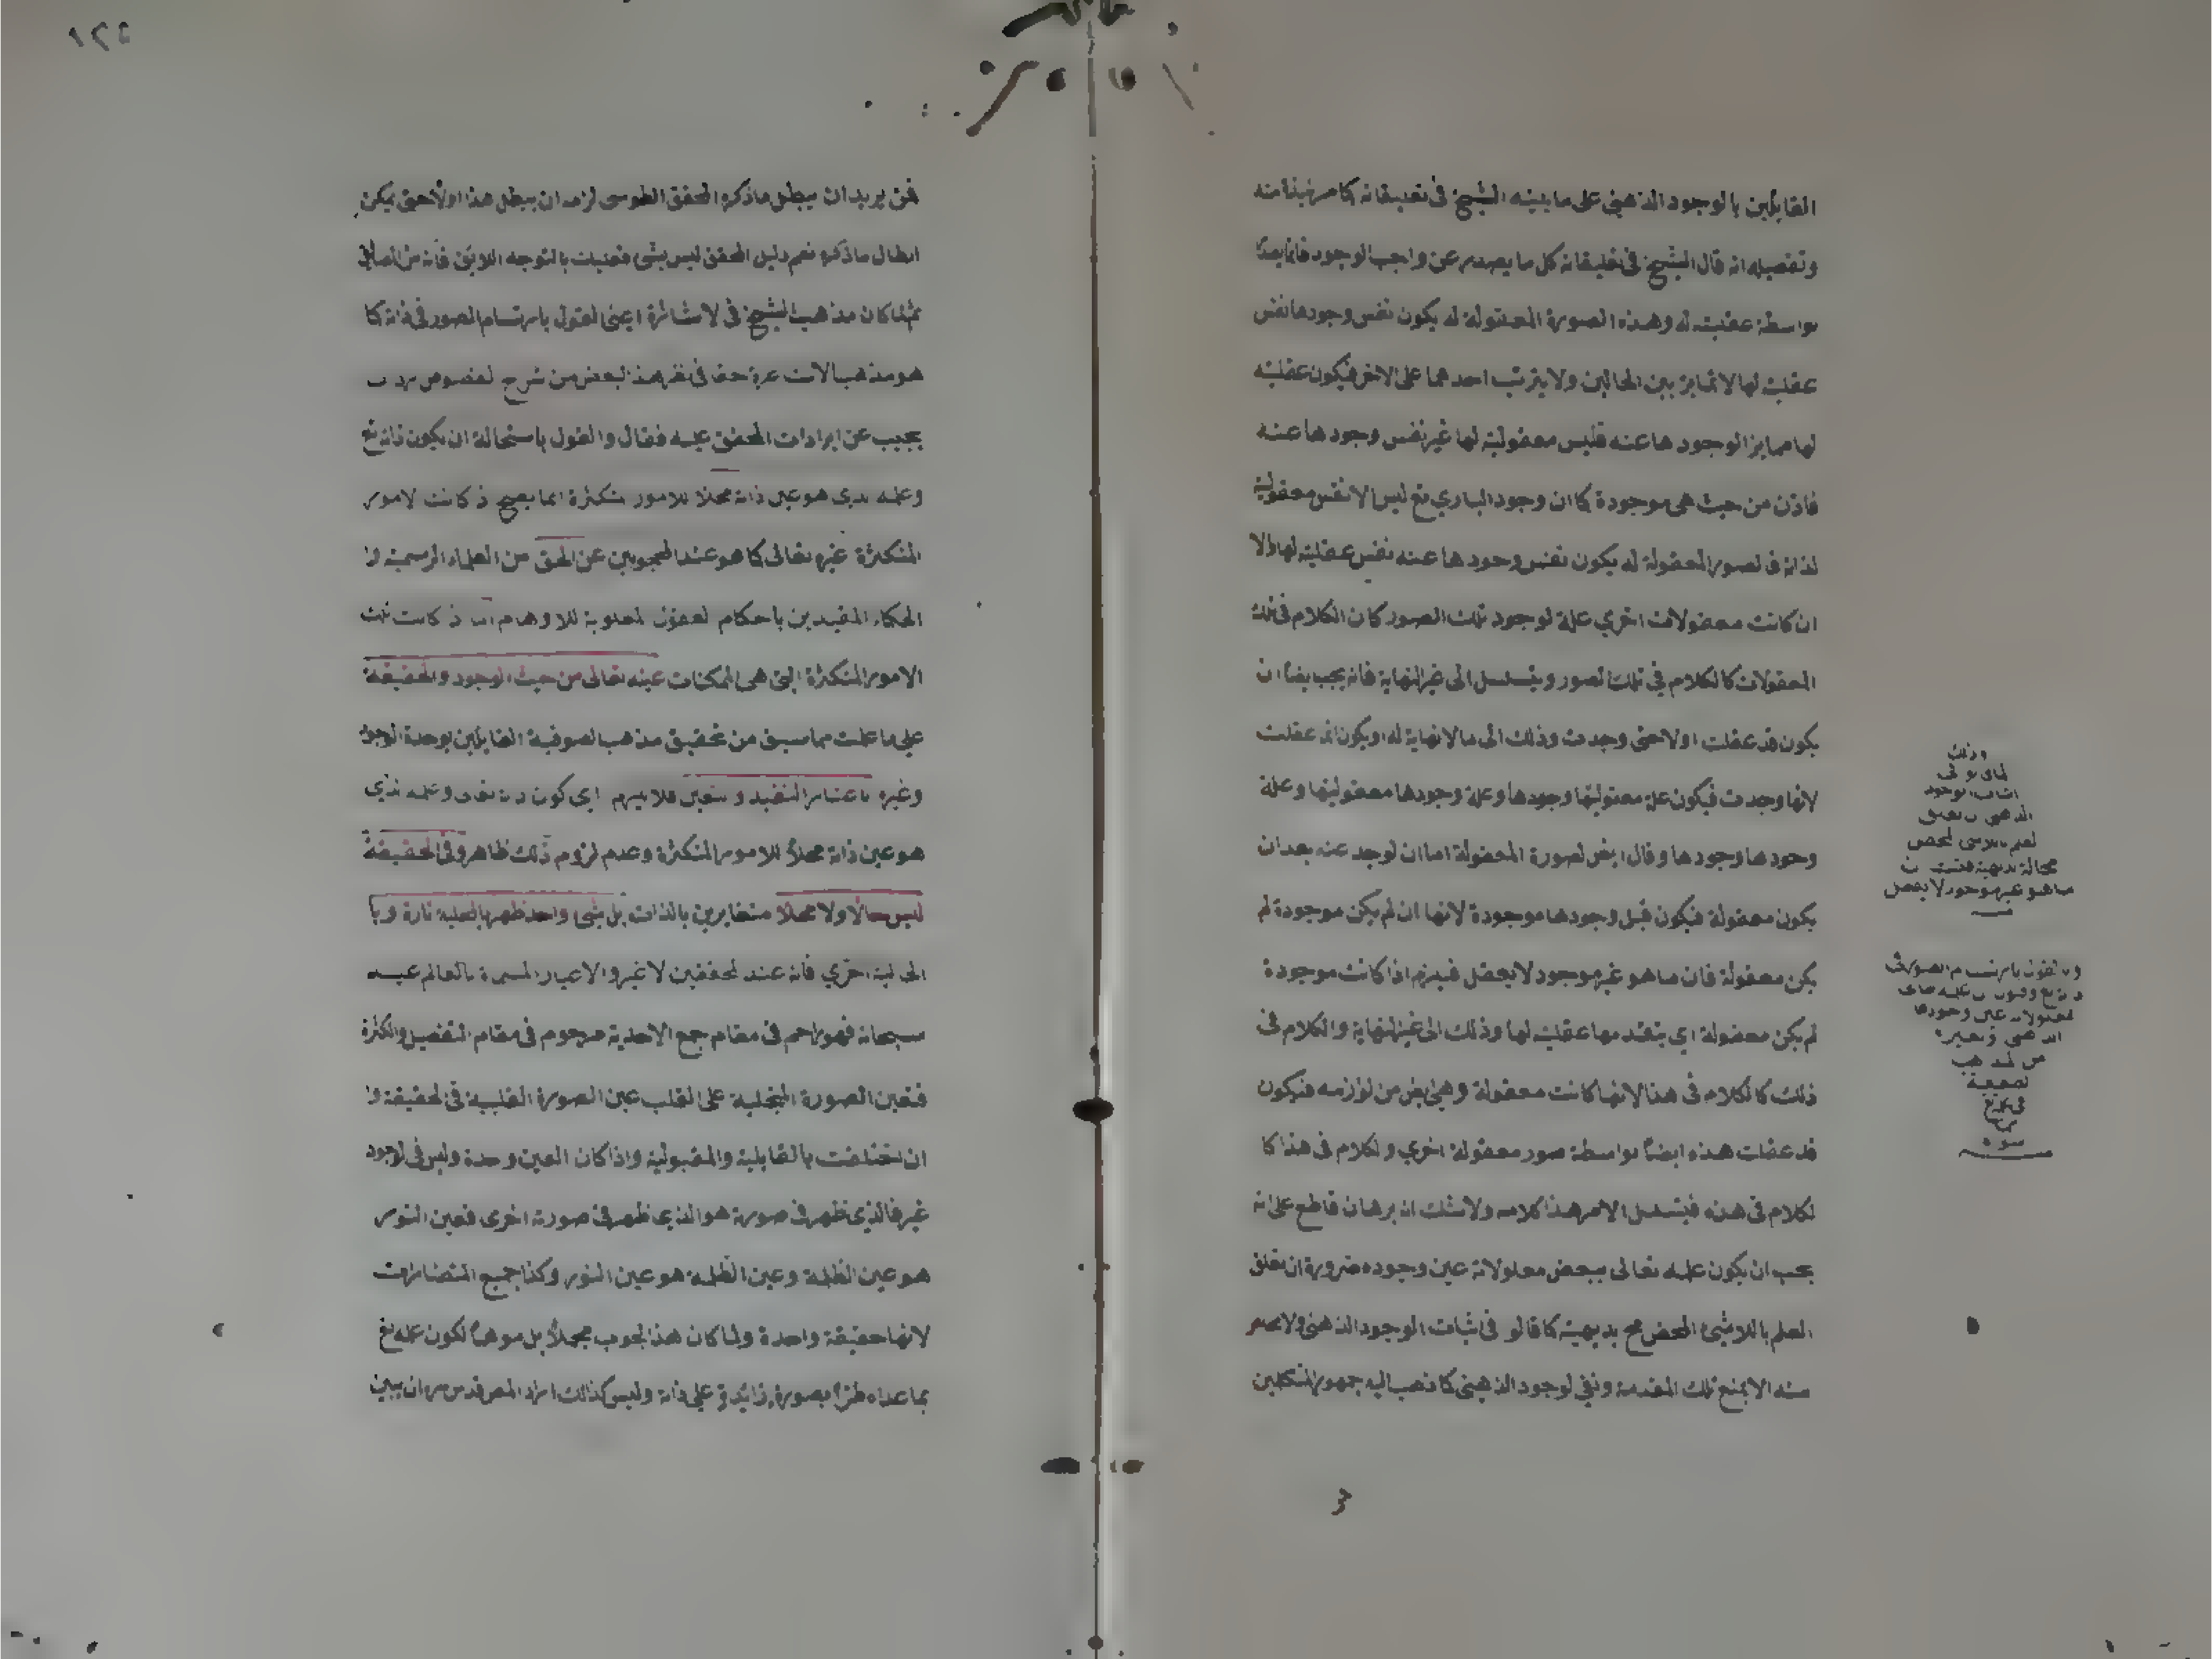 القايلين بالوجود الذهني على ما بينه الشيخ في تعليقاته كما مر نبذة منه
وتفصيله انه قال الشيخ في تعليقاته كل ما يصدر عن واجب الوجود فانما يصدر
بواسطة عقليته له وهذه الصورة المعقولة له يكون نفس وجودها نفس
عقليته لها لا تمايز بين الحالين ولا يترتب احدهما على الاخر فيكون عقليته
لها ممايزا لوجودها عنه فليس معقوليته لها غير نفس وجودها عنه
فاذن من حيث هي موجودة كما ان وجود الباري تع ليس الا نفس معقولية
لذاته فالصور المعقولة له يكون نفس وجودها عنه نفس عقليته لها والا
ان كانت معقولات اخري علة لوجود تلك الصور كان الكلام في تلك
المعقولات كالكلام في تلك الصور ويتسلسل الى غير النهاية فانه يجب ايضا ان
يكون قد عقلت اولا حتى وجدت وذلك الى ما لا نهاية له او يكون انما عقلت
لانها وجدت فيكون علة معقوليتها وجودها وعلة وجودها معقوليتها وعلة
وجودها وجودها وقال ايضا لصورة المعقولة اما ان توجد عنه بعد ان
يكون معقولة فيكون قبل وجودها موجودة لانها ان لم يكن موجودة لم
يكن معقولة فان ما هو غير موجود لا يعقل فيلزم اذا كانت موجودة
لم يكن معقولة اي يتقدمها عقليته لها وذلك الى غير النهاية والكلام في
ذلك كالكلام في هذا لانها كانت معقولة وهي ايض من لوازمه فيكون
قد عقلت هذه ايضا بواسطة صور معقولة اخري والكلام في هذا كا
لكلام في هذه فيتسلسل الامر هذا كلامه ولا شك انه برهان قاطع على انه
يجب ان يكون علمه تعالى ببعض معلولاته عين وجوده ضرورة ان تعلق
العلم باللاشئ المحض مح بديهية كما قالو في اثبات الوجود الذهني ولا مفر
منه الا بمنع تلك المقدمة ونفي لوجود الذهني كما ذهب اليه جمهور المتكلمين
وذلك
الذهني
لعلم باللاشئ المحض
ما هو غير موجود لا يعقل
سره
١٢٤
فمن يريد ان يبطل ما ذكره المحقق الطوسي لزمه ان يبطل هذا اولا حتى يمكن
ابطال ما ذكره نعم دليل المحقق ليس بشئ فعليك بالتوجه اللايق فانه من المعالي
ثم لما كان مذهب الشيخ في لاشارة اعني القول بارتسام الصور في ذاته كما
هو مذهب الاشاعرة حقا في نظر هذا لبعض من شرح لفصوص
يجيب عن ايرادات المحقق عليه فقال والقول باستحالة ان يكون ذاته تع
وعلمه لذي هو عين ذاته محلا للامور متكثرة انما يصح ذ كانت لامور
المتكثرة غيره تعالى كما هو عند المحجوبين عن الحق من العلماء الرسمية و
الحكماء المقيدين باحكام لعقول المغلوبة للاوهام اما ذ كانت تلك
الامور المتكثرة التي هي الممكنات عينه تعالى من حيث الوجود والحقيقة
على ما علمت مما سبق من تحقيق مذهب الصوفية القايلين بوحدة الوجود
وغيره باعتبار التقييد والتعين فلا يلزم اي كون ذاته تعالى وعلمه لذي
هو عين ذاته محلا للامور المتكثرة وعدم لزوم ذلك ظاهر وفي الحقيقة
ليس حالا ولا محلا متغايرين بالذات بل شئ واحد ظهر بالمحلية تارة وبا
الحالية اخري فانه عند المحققين لا غير والاعيار المسماة بالعالم عينه
سبحانه فهو راحم في مقام جمع الاحدية مرحوم في مقام التفصيل والكثرة
فعين الصورة المتجلية على القلب عين الصورة القلبية في الحقيقة و
ان اختلفت بالقابلية والمقبولية واذا كان العين وحدة وليس في لوجود
غير فالذي ظهر في صورة هو الذي ظهر في صورة اخرى فعين النور
هو عين الظلمة وعين الظلمة هو عين النور وكذا جميع المتضادات
لانها حقيقة واحدة ولما كان هذا لجوب مجملا بل موهما لكون علمه تع
بما عداه طرا بصورة زايدة على ذاته وليس كذلك اراد المص قدس سره ان يبين